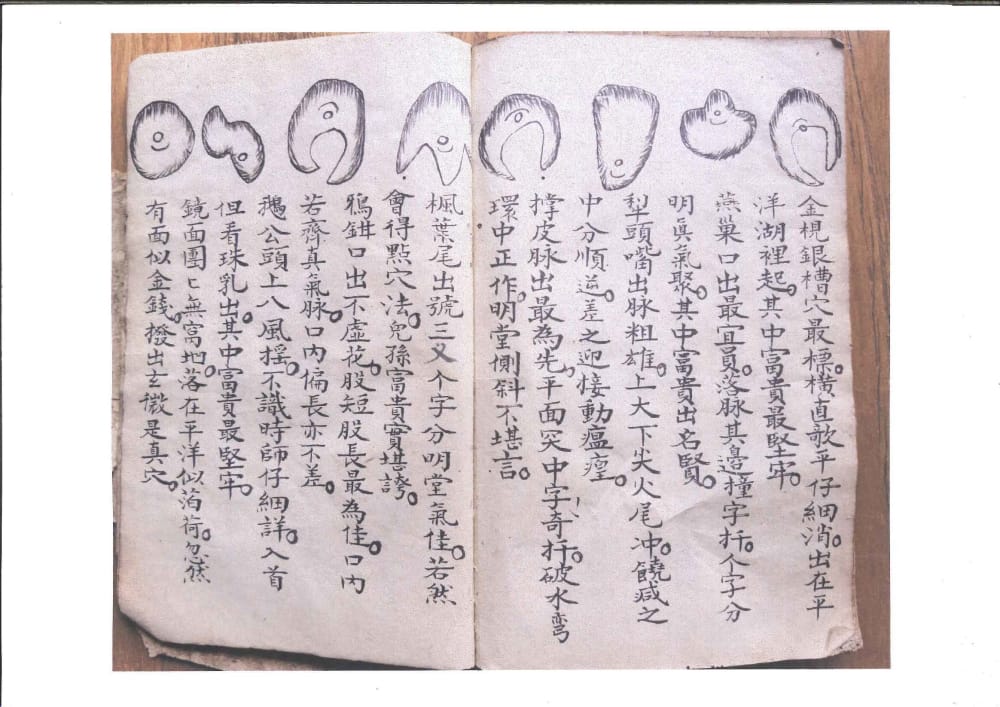 金梘銀槽穴最標。橫直欹平仔細消。出在平
洋湖裡起。其中富貴最堅牢。
燕巢口出最宜員。落脉其邊撞字扦。个字分
明真氣聚。其中富貴出名賢。
犁頭嘴出脉粗雄。上大下尖火尾冲。饒減之
中分順逆。差之迎接動瘟㾮。
撑皮脉出最為先。平面突中字奇扦。破水彎
環中正作。明堂側斜不堪言。
楓葉尾出號三义个字分明堂氣佳。若然
會得點穴法。兒孫富貴實堪誇。
鴉鉗口出不虛花。股短股長最為佳。口內
若齊真氣脉。口內偏長亦不差。
鵝公頭上八風摇。不識時師仔細詳。入首
但看珠乳出。其中富貴最堅牢。
鏡面團匕無窩地。落在平洋似萡荷。忽然
有面似金錢。撥出玄微是真穴。